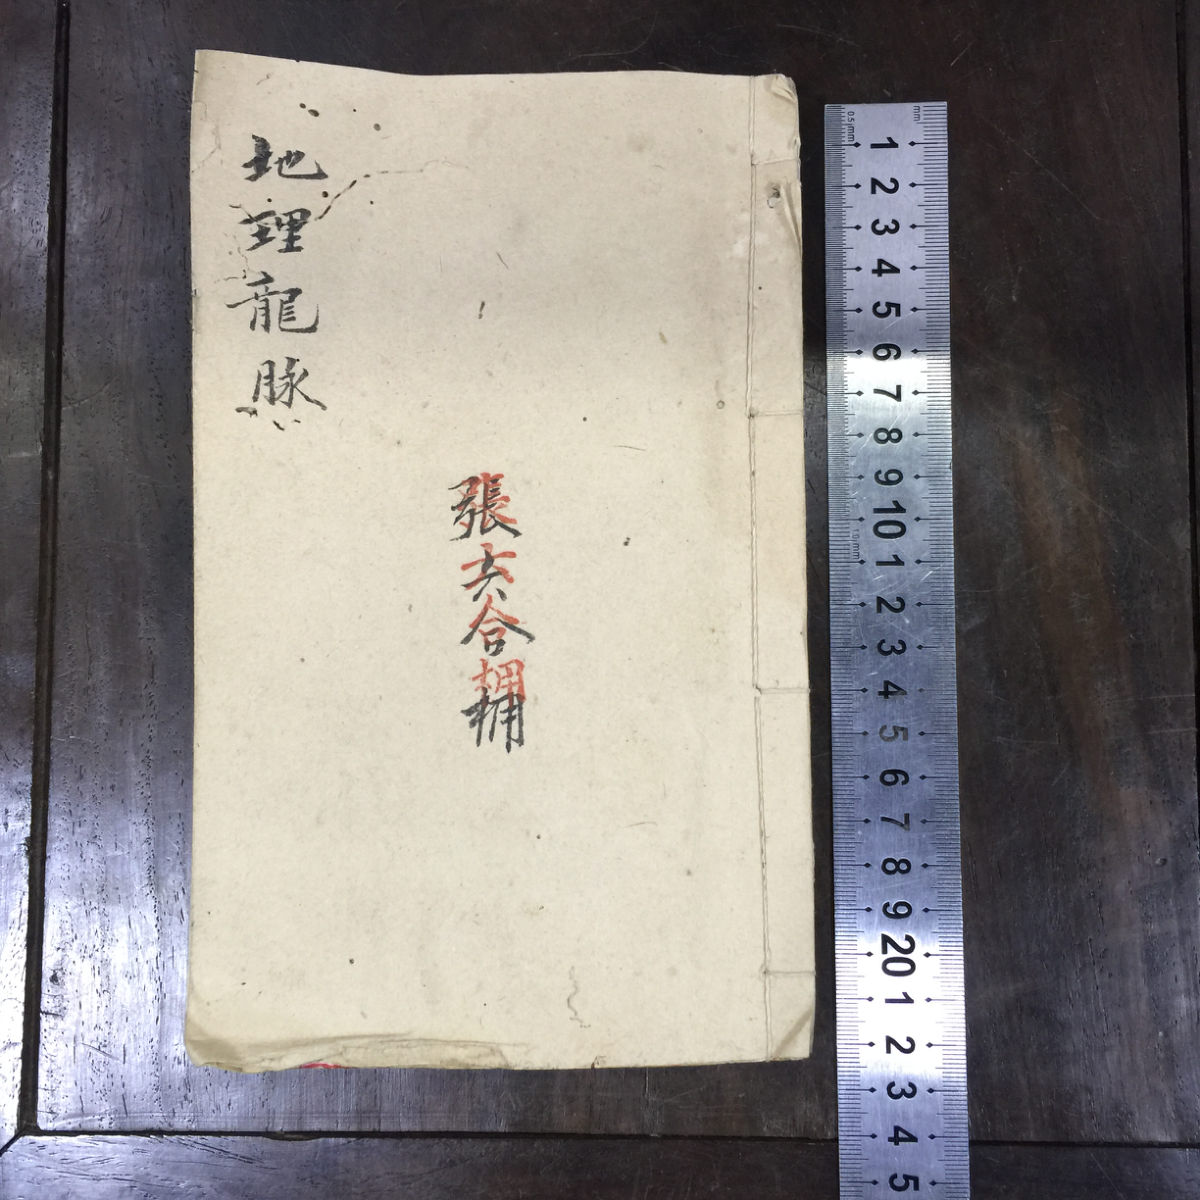 地理龍脉
張六合拥
0.5mm
mm
1 2 3 4 5 6 7 8 9 10 1 2 3 4 5 6 7 8 9 20 1 2 3 4 5